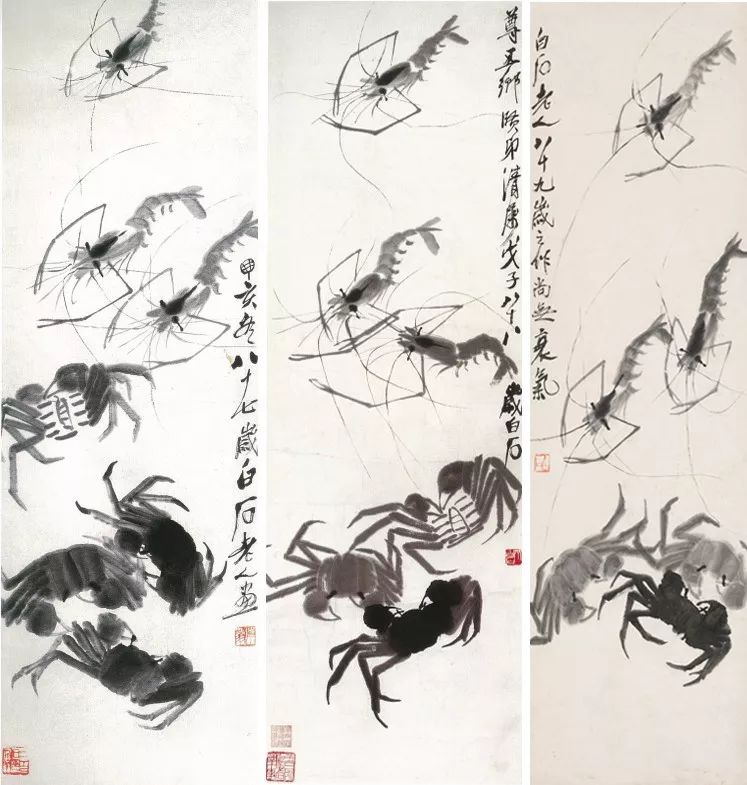 亥八十七歲白石老人畫
尊五鄉清戊子八十八歲白石
白石老人八十九歲之作尚無衰氣